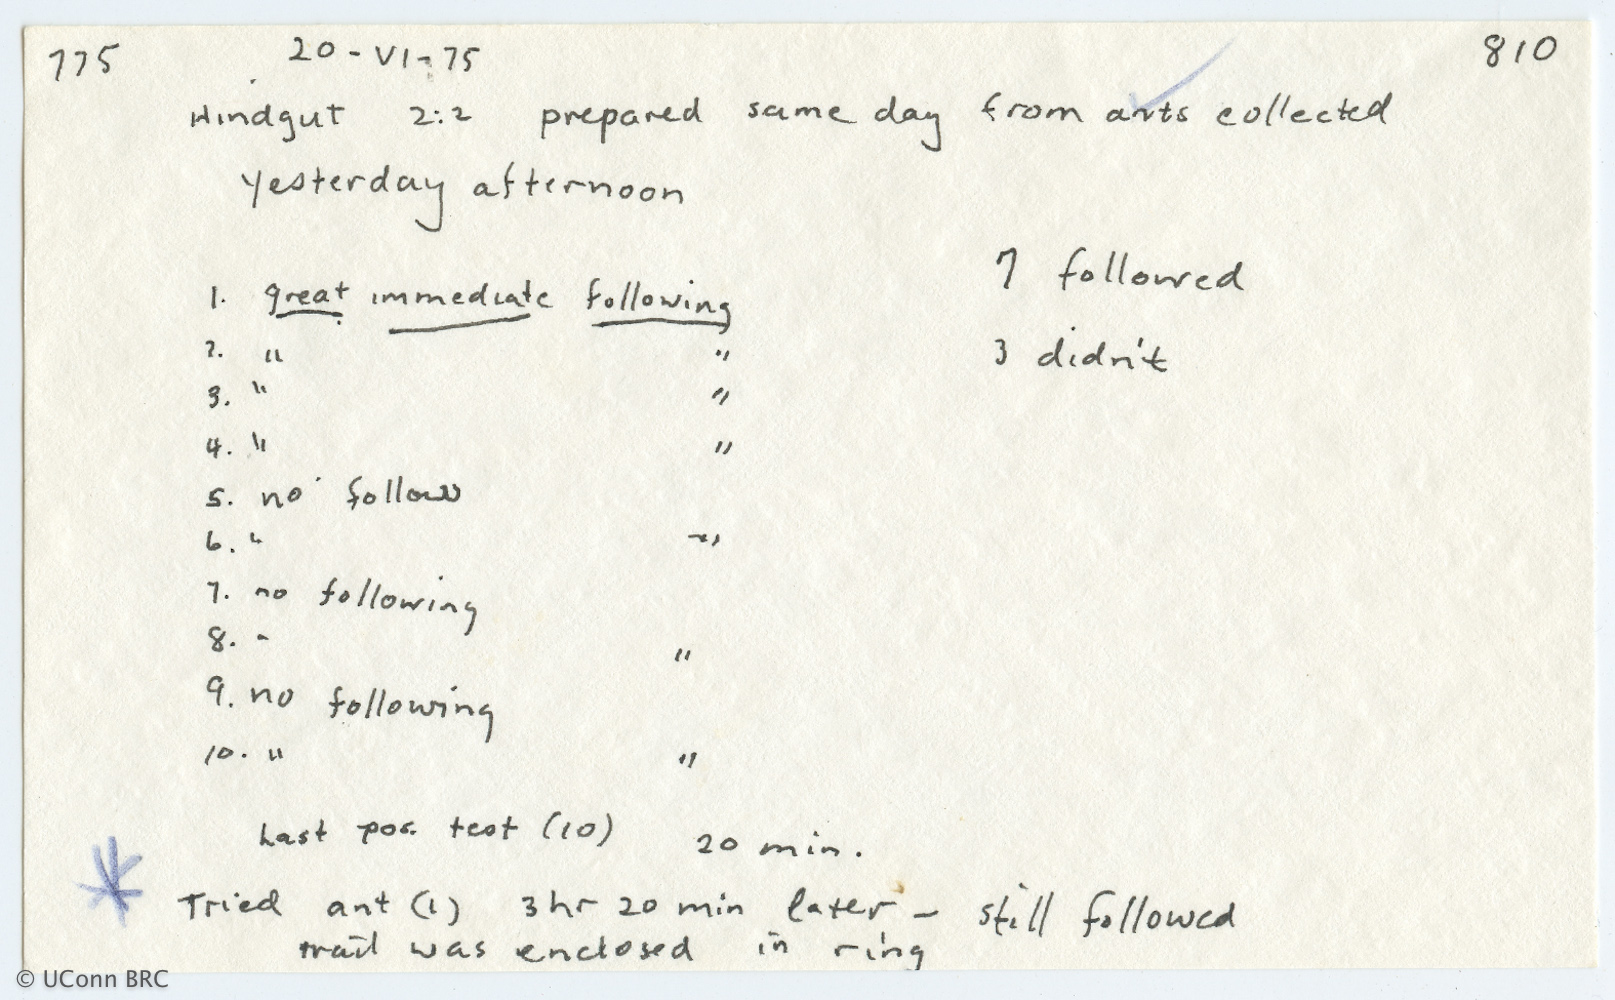 775 20-VI-75 810
Hindgut 2:2 prepared same day from ants collected
yesterday afternoon
7 followed
1. great immediate following
3 didn't
2. " "
3. " "
4. " "
5. no follow
6. " "
7. no following
8. " "
9. no following
10. " "
Last pos. test (10) 20 min.
* Tried ant (1) 3 hr 20 min later - still followed
trail was enclosed in ring
© UConn BRC